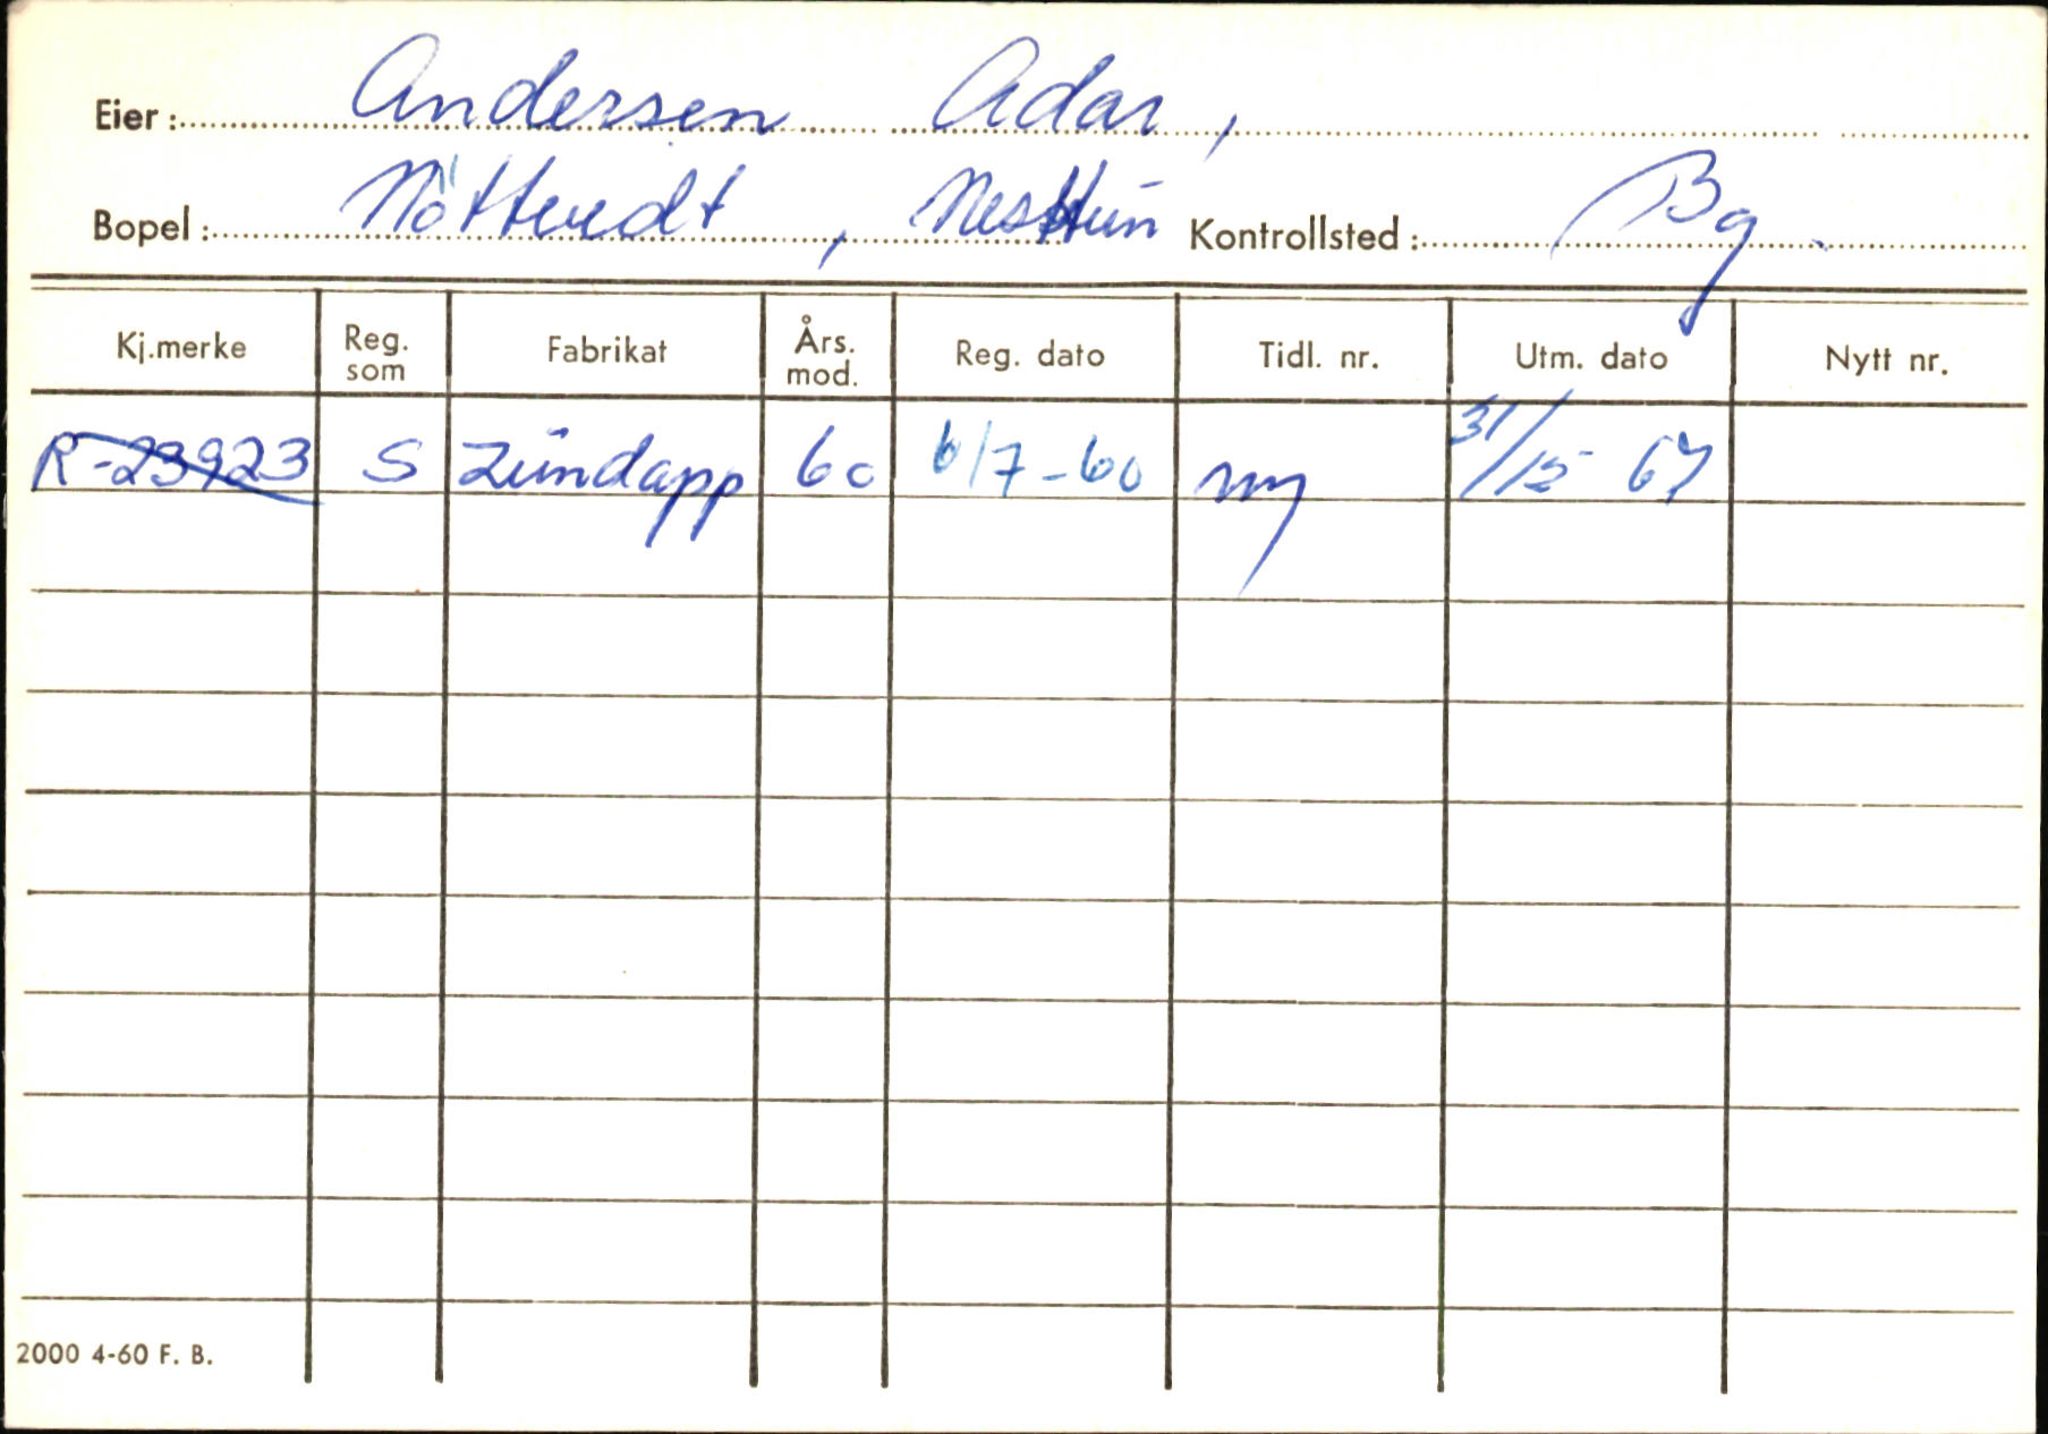 Eier: Andersen Adar,
Bopel: Nöttvedt, Nesttun Kontrollsted: Bg.
Kj.merke Reg. som Fabrikat Års. mod. Reg. dato Tidl. nr. Utm. dato Nytt nr.
R-23923 S Zündapp 60 6/7-60 ny 31/12 67
2000 4-60 F. B.